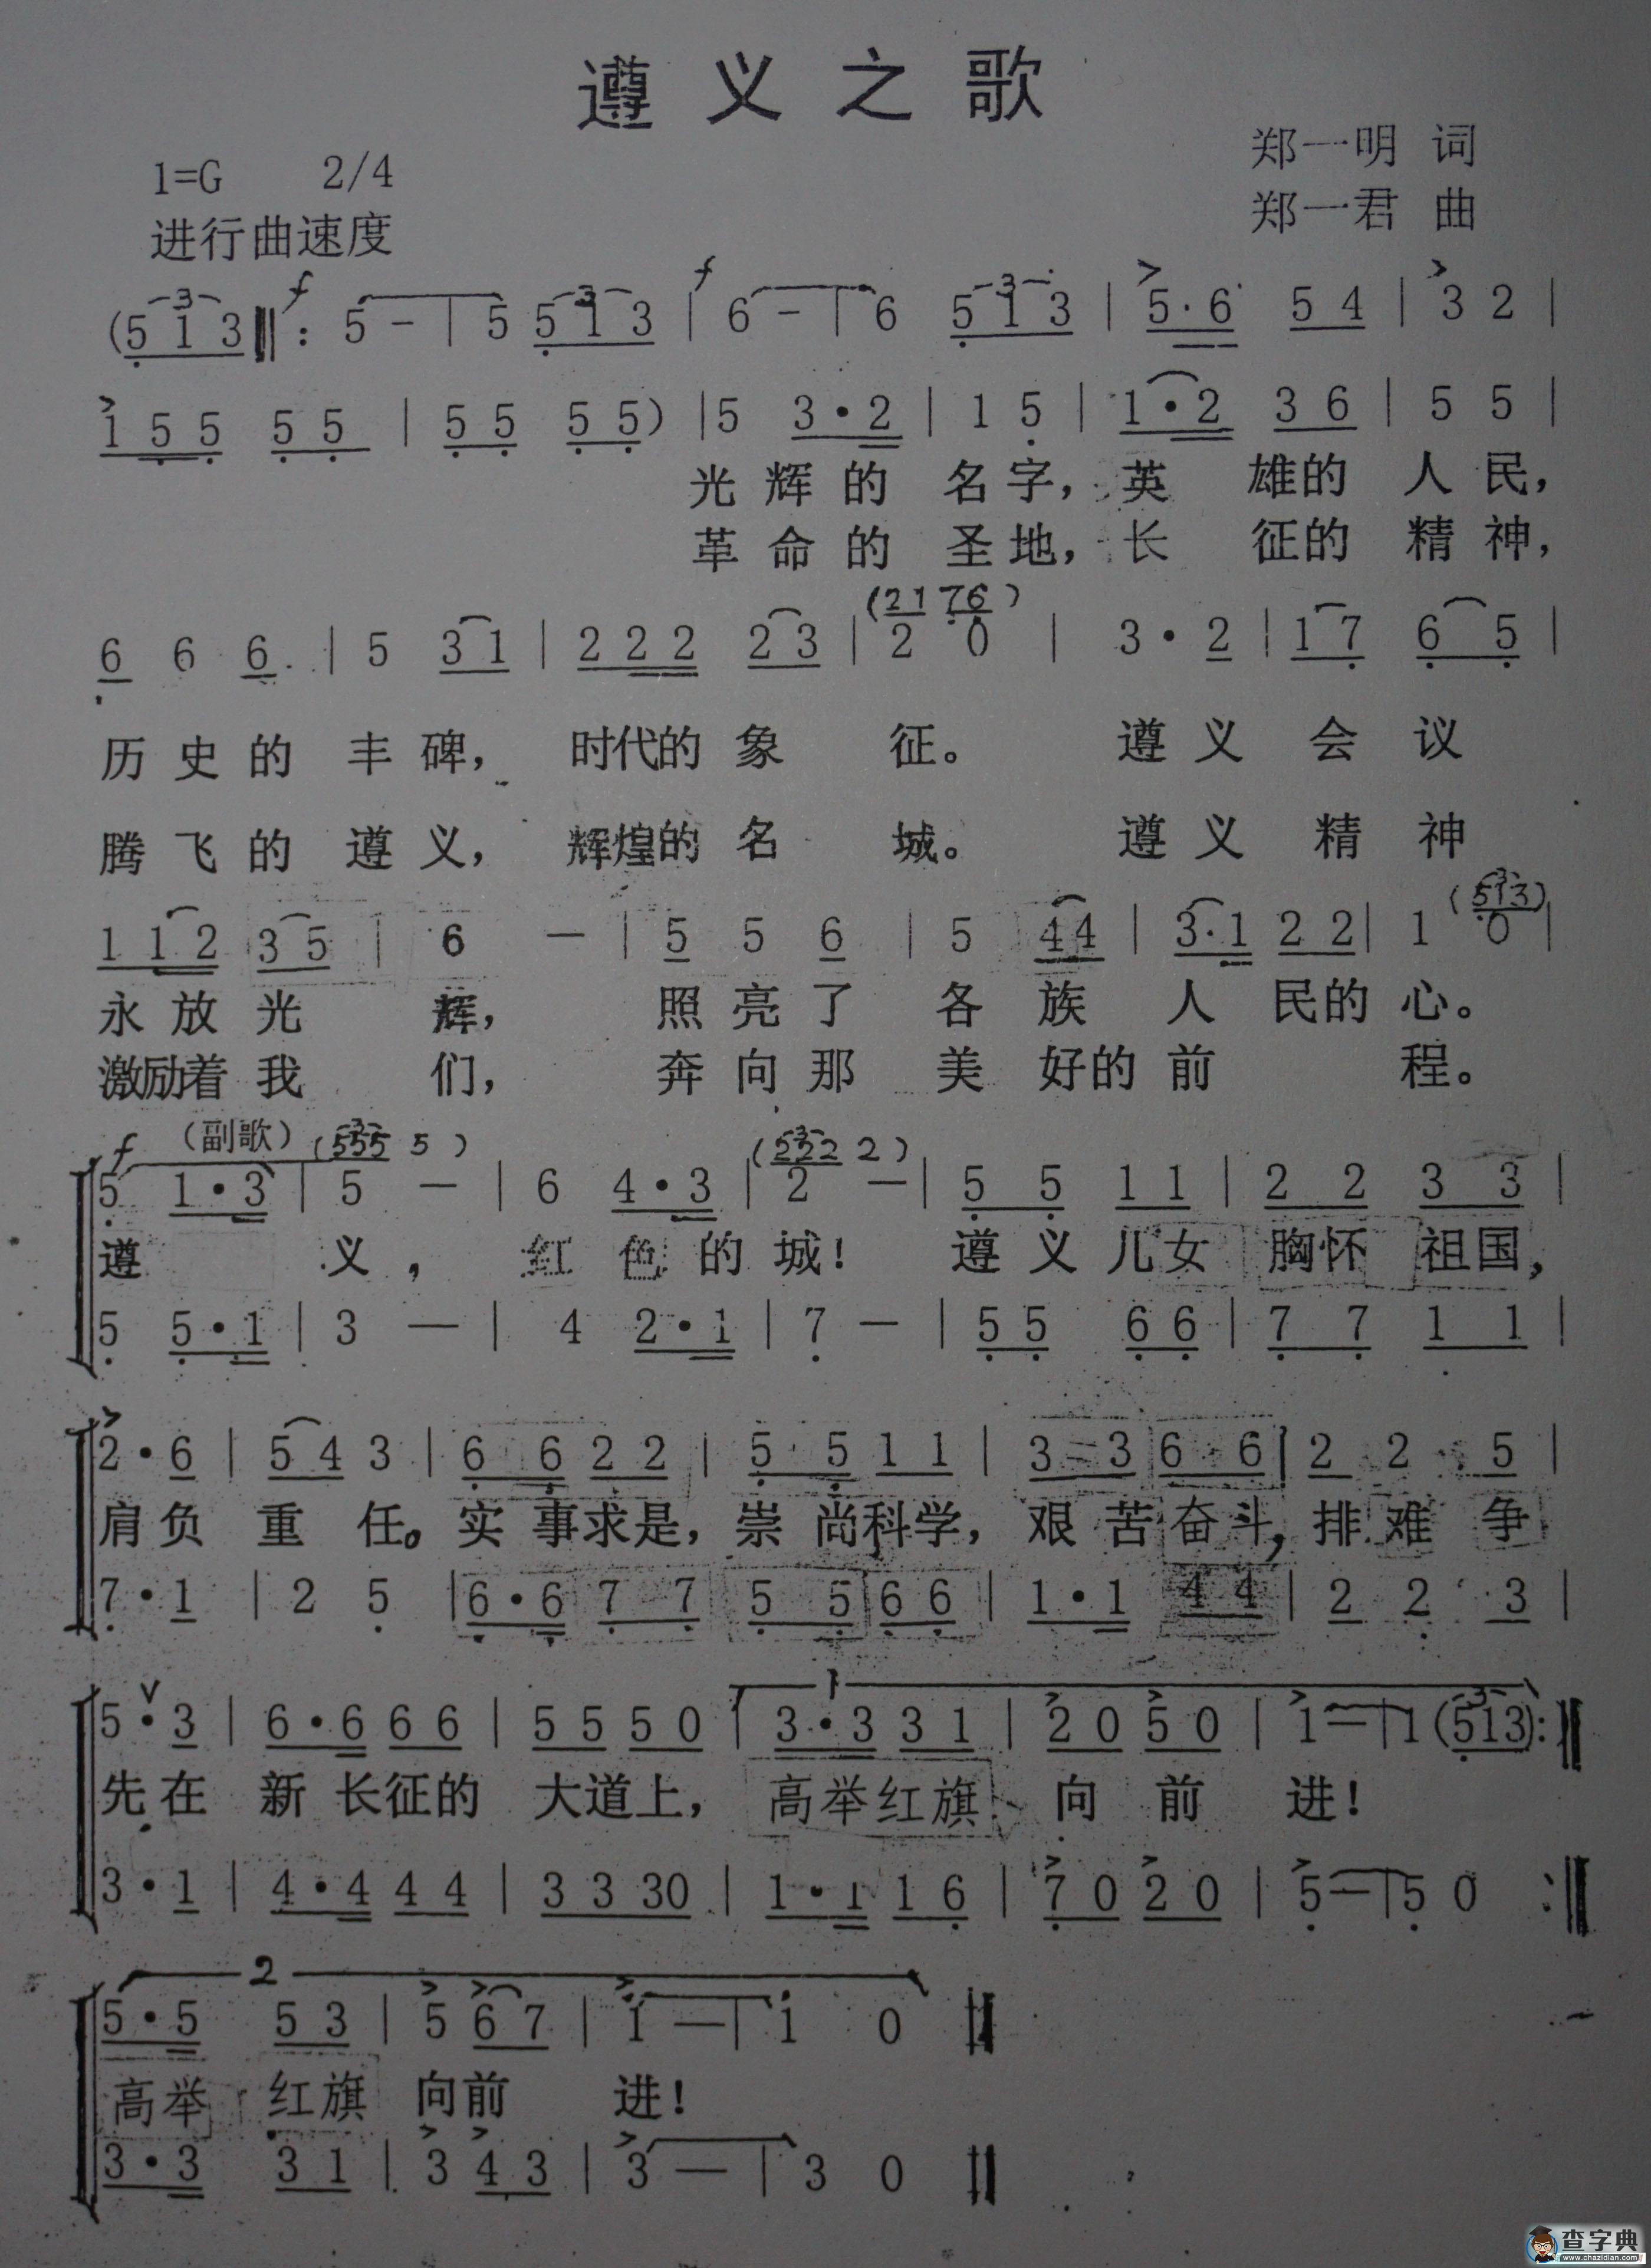 遵义之歌
郑一明 词
1=G 2/4
郑一君 曲
进行曲速度
f f
3 3 3
(5 1 3 ‖: 5 - | 5 5 1 3 | 6 - | 6 5 1 3 | 5·6 5 4 | 3 2 |
1 5 5 5 5 | 5 5 5 5) | 5 3·2 | 1 5 | 1·2 3 6 | 5 5 |
光辉的名字,英雄的人民,
革命的圣地,长征的精神,
(2 1 7 6)
6 6 6 | 5 3 1 | 2 2 2 2 3 | 2 0 | 3·2 | 1 7 6 5 |
历史的丰碑,时代的象征。遵义会议
腾飞的遵义,辉煌的名城。遵义精神
3
(5 1 3)
1 1 2 3 5 | 6 - | 5 5 6 | 5 4 4 | 3·1 2 2 | 1 0 |
永放光辉,照亮了各族人民的心。
激励着我们,奔向那美好的前程。
f (副歌) (5 5 5 5) (2 2 2 2)
5 1·3 | 5 - | 6 4·3 | 2 - | 5 5 1 1 | 2 2 3 3 |
遵义,红色的城!遵义儿女胸怀祖国,
5 5·1 | 3 - | 4 2·1 | 7 - | 5 5 6 6 | 7 7 1 1 |
2·6 | 5 4 3 | 6 6 2 2 | 5 5 1 1 | 3 - 3 6·6 | 2 2 5 |
肩负重任。实事求是,崇尚科学,艰苦奋斗,排难争
7·1 | 2 5 | 6·6 7 7 | 5 5 6 6 | 1·1 4 4 | 2 2 3 |
1 3
5·3 | 6·6 6 6 | 5 5 5 0 | 3·3 3 1 | 2 0 5 0 | 1 - | 1 (5 1 3) :‖
先在新长征的大道上,高举红旗向前进!
3·1 | 4·4 4 4 | 3 3 3 0 | 1·1 1 6 | 7 0 2 0 | 5 - | 5 0 :‖
2
5·5 5 3 | 5 6 7 | 1 - | 1 0 ‖
高举红旗向前进!
3·3 3 1 | 3 4 3 | 3 - | 3 0 ‖
查字典
www.chazidian.com